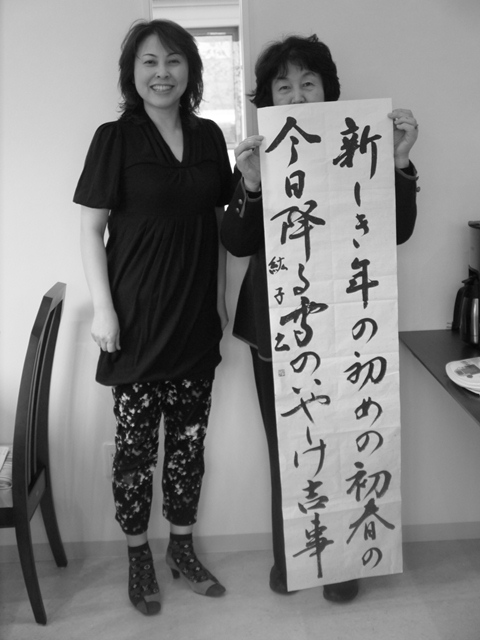 新しき年の初めの初春の
今日降る雪のいやしけ吉事
紘子